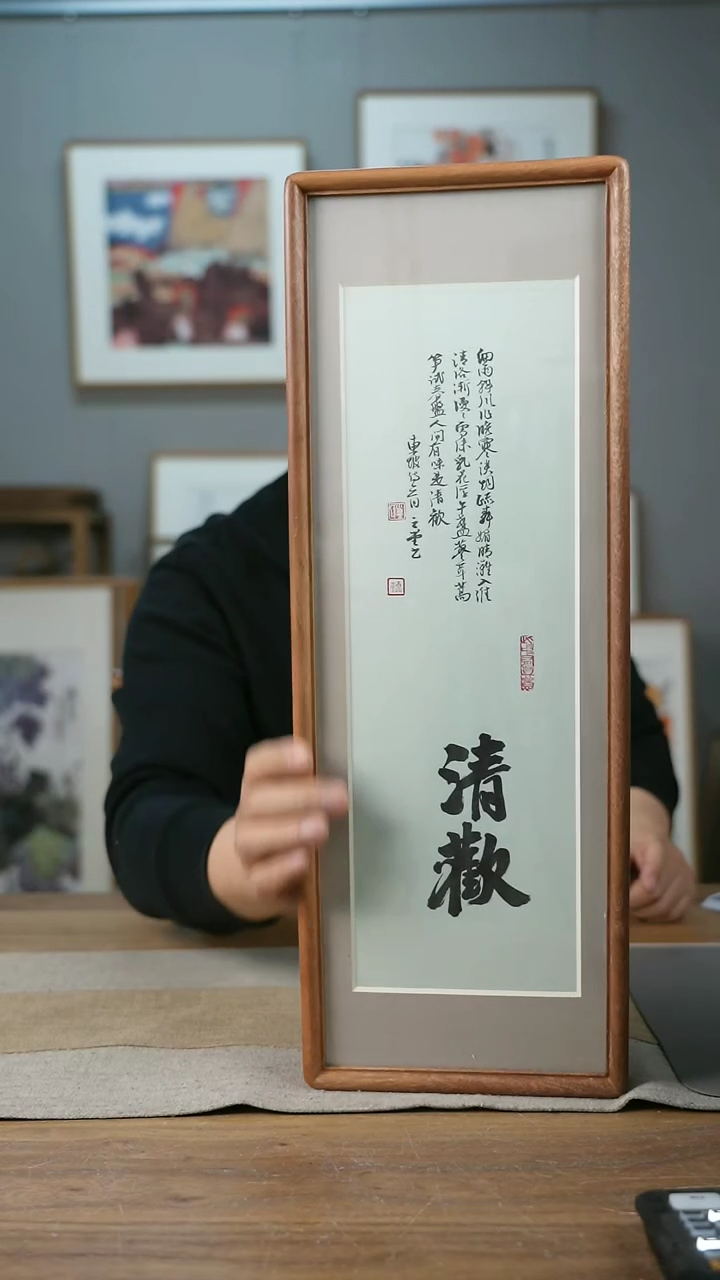 細雨斜風作曉寒淡烟疏柳媚晴灘入淮
清洛漸漫々雪沫乳花浮午盞蓼茸蒿
筍試春盤人間有味是清歡
東坡
清歡